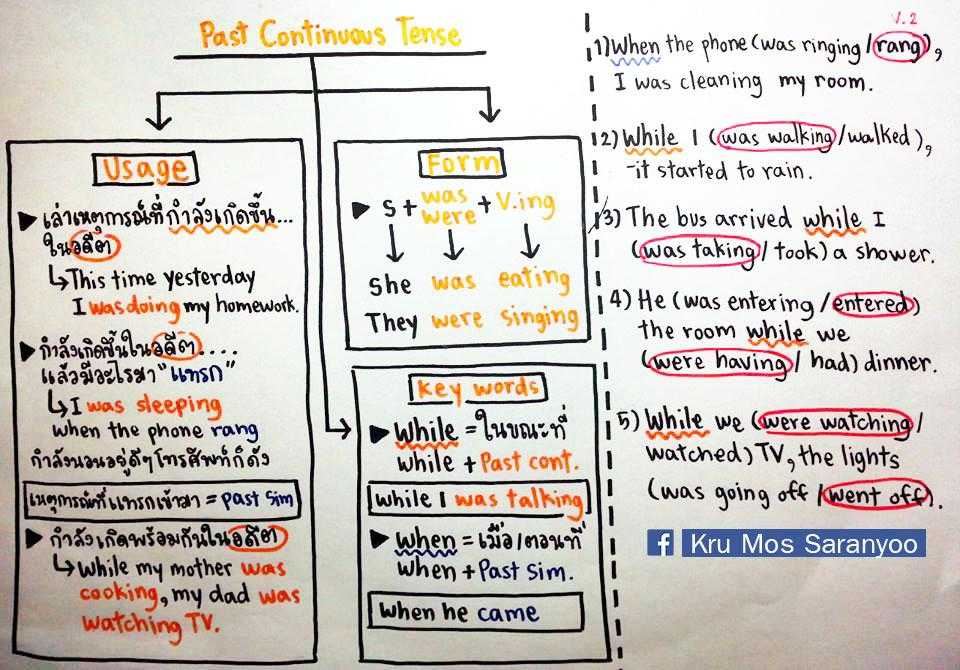 Past Continuous Tense
Usage
▶ เล่าเหตุการณ์ที่กำลังเกิดขึ้น...
ในอดีต
↳ This time yesterday
I was doing my homework.
▶ กำลังเกิดขึ้นในอดีต....
แล้วมีอะไรมา "แทรก"
↳ I was sleeping
when the phone rang
กำลังนอนอยู่ดีๆ โทรศัพท์ก็ดัง
เหตุการณ์ที่แทรกเข้ามา = past sim
▶ กำลังเกิดพร้อมกันในอดีต
↳ While my mother was
cooking, my dad was
watching TV.
Form
▶ S + was + V.ing
were
She was eating
They were singing
Key words
▶ While = ในขณะที่
while + Past cont.
while I was talking
▶ when = เมื่อ/ตอนที่
when + Past sim.
when he came
V.2
1) When the phone (was ringing / rang),
I was cleaning my room.
2) While I (was walking / walked),
it started to rain.
3) The bus arrived while I
(was taking / took) a shower.
4) He (was entering / entered)
the room while we
(were having / had) dinner.
5) While we (were watching /
watched) TV, the lights
(was going off / went off).
f Kru Mos Saranyoo